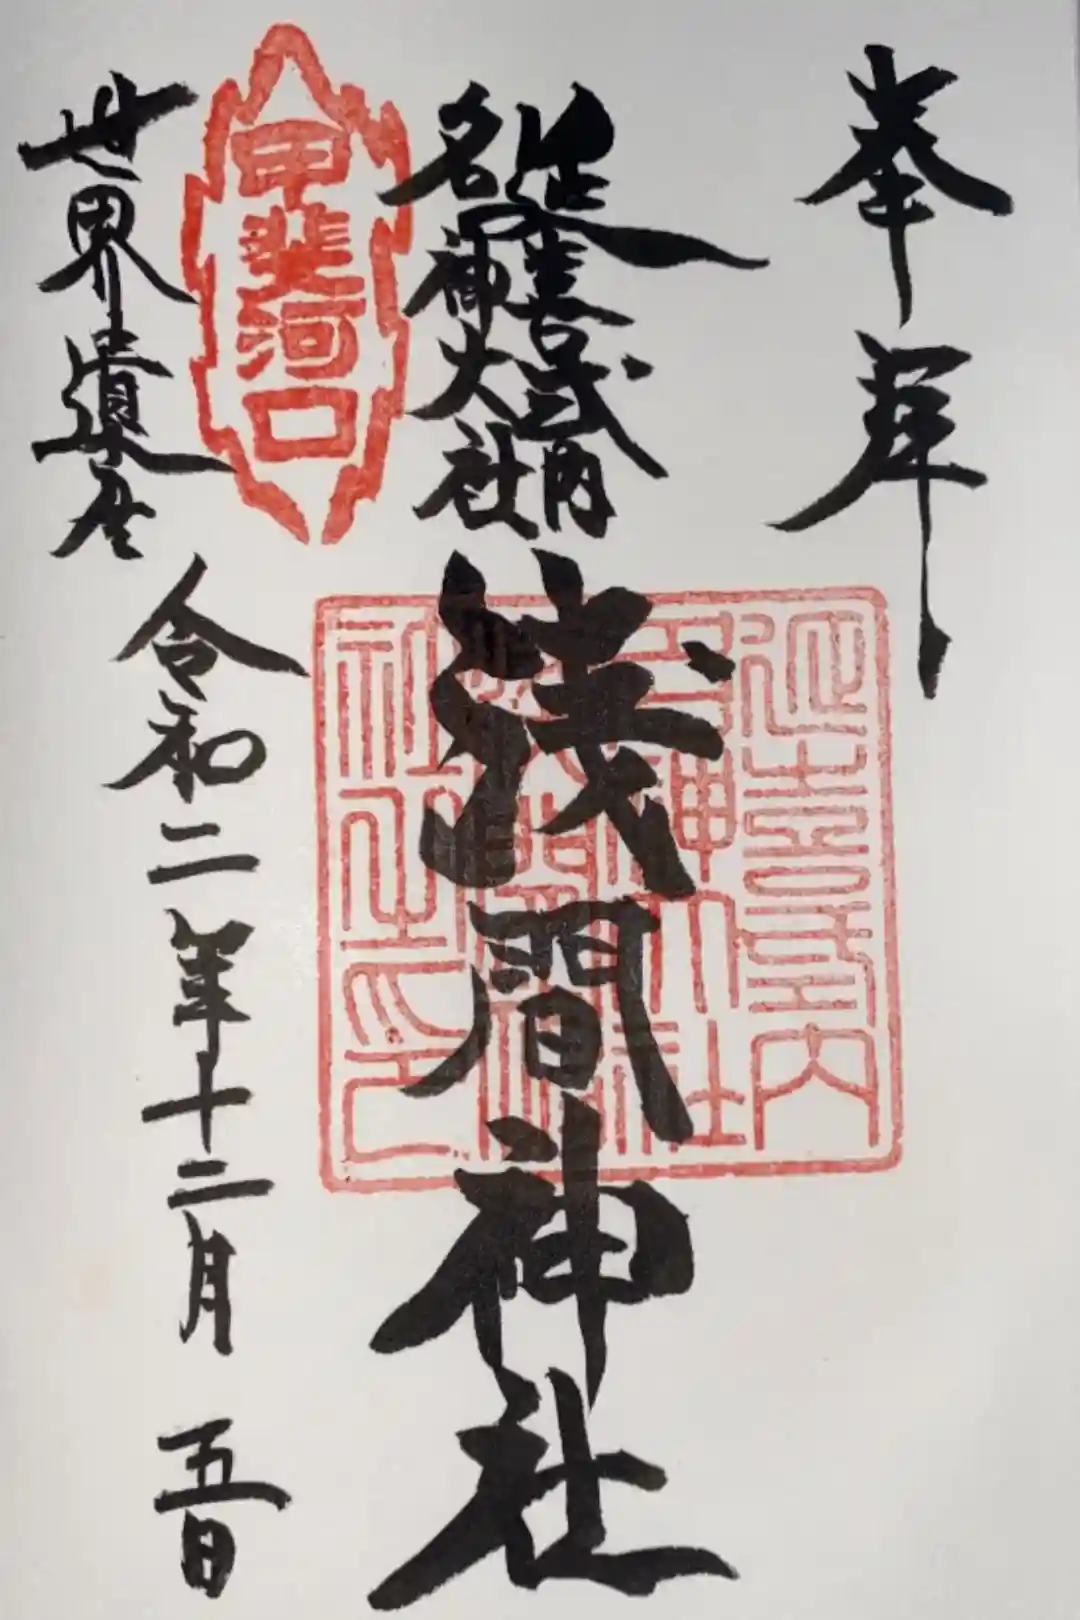 奉拝
延喜式内
名神大社
浅間神社
延喜式内
名神大社
社之印
甲斐河口
令和二年十二月五日
世界遺産